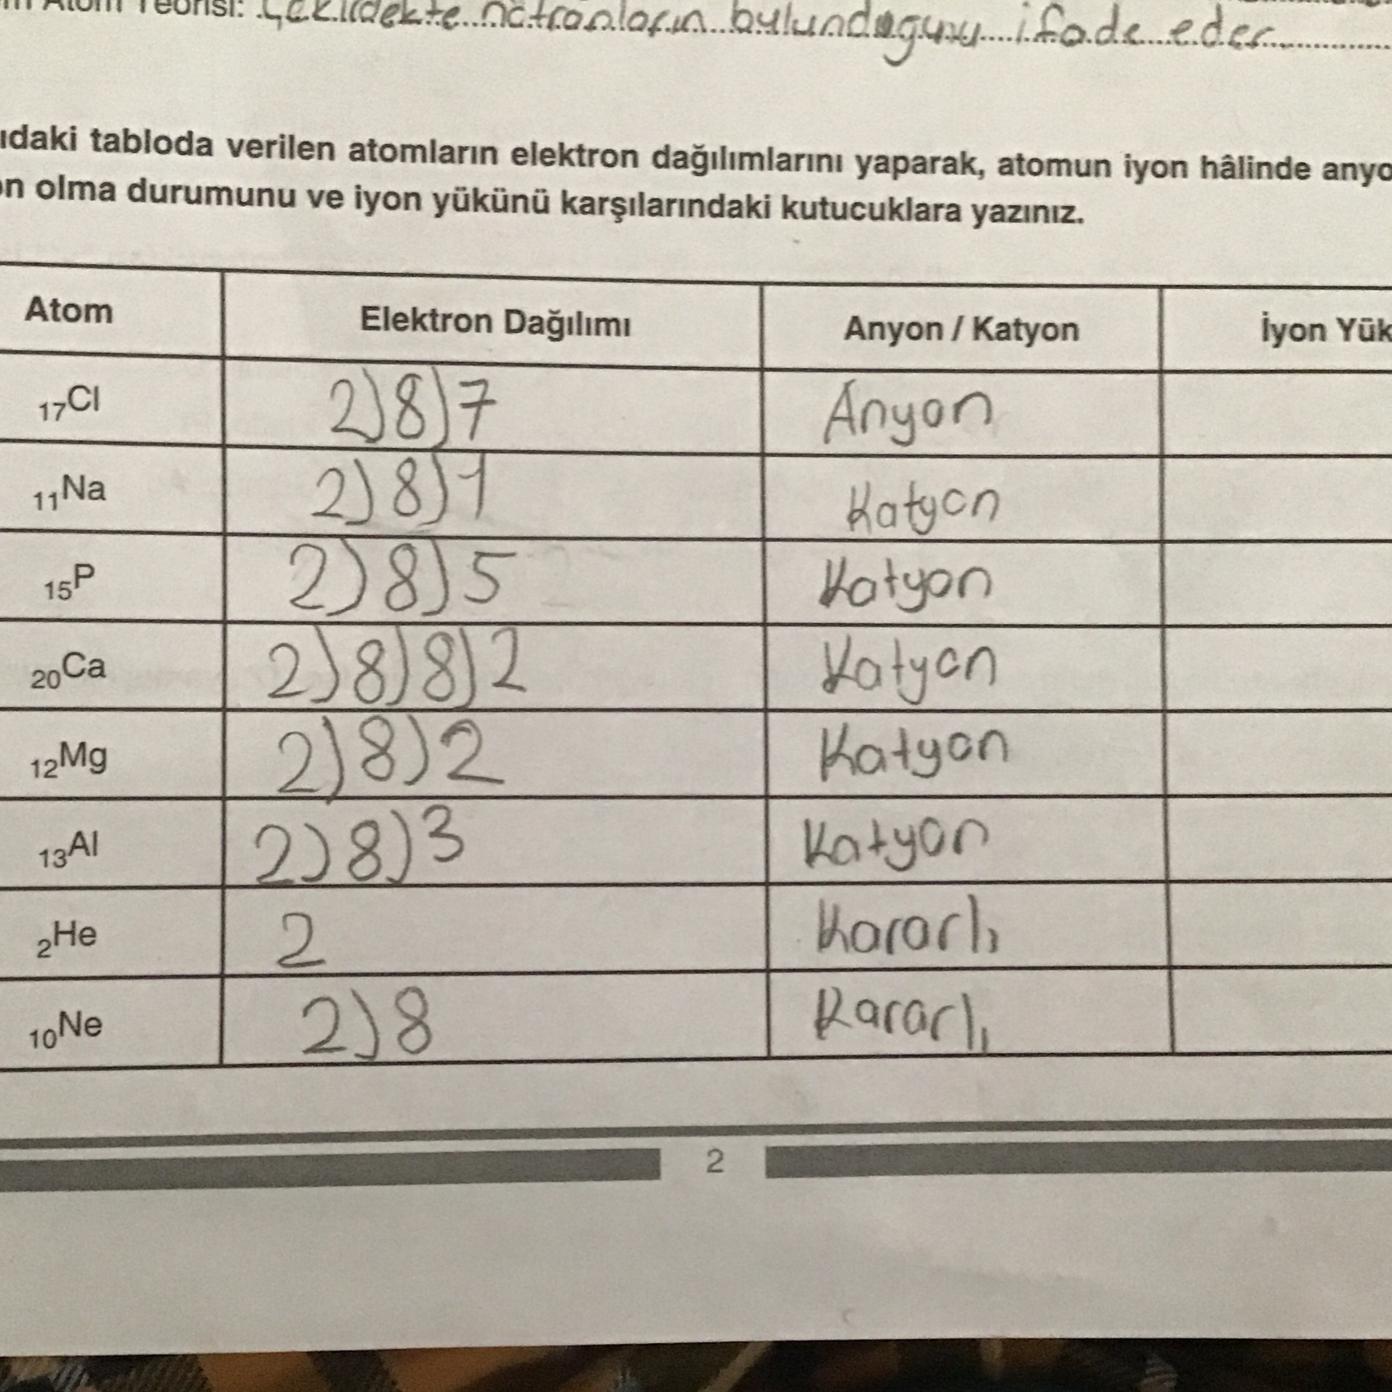 Atom Teorisi: Çekirdekte nötronların bulunduğunu ifade eder
ıdaki tabloda verilen atomların elektron dağılımlarını yaparak, atomun iyon hâlinde anyo
on olma durumunu ve iyon yükünü karşılarındaki kutucuklara yazınız.
Atom Elektron Dağılımı Anyon / Katyon İyon Yük
17Cl 2)8)7 Anyon
11Na 2)8)1 Katyon
15P 2)8)5 Katyon
20Ca 2)8)8)2 Katyon
12Mg 2)8)2 Katyon
13Al 2)8)3 Katyon
2He 2 Kararlı
10Ne 2)8 Kararlı
2